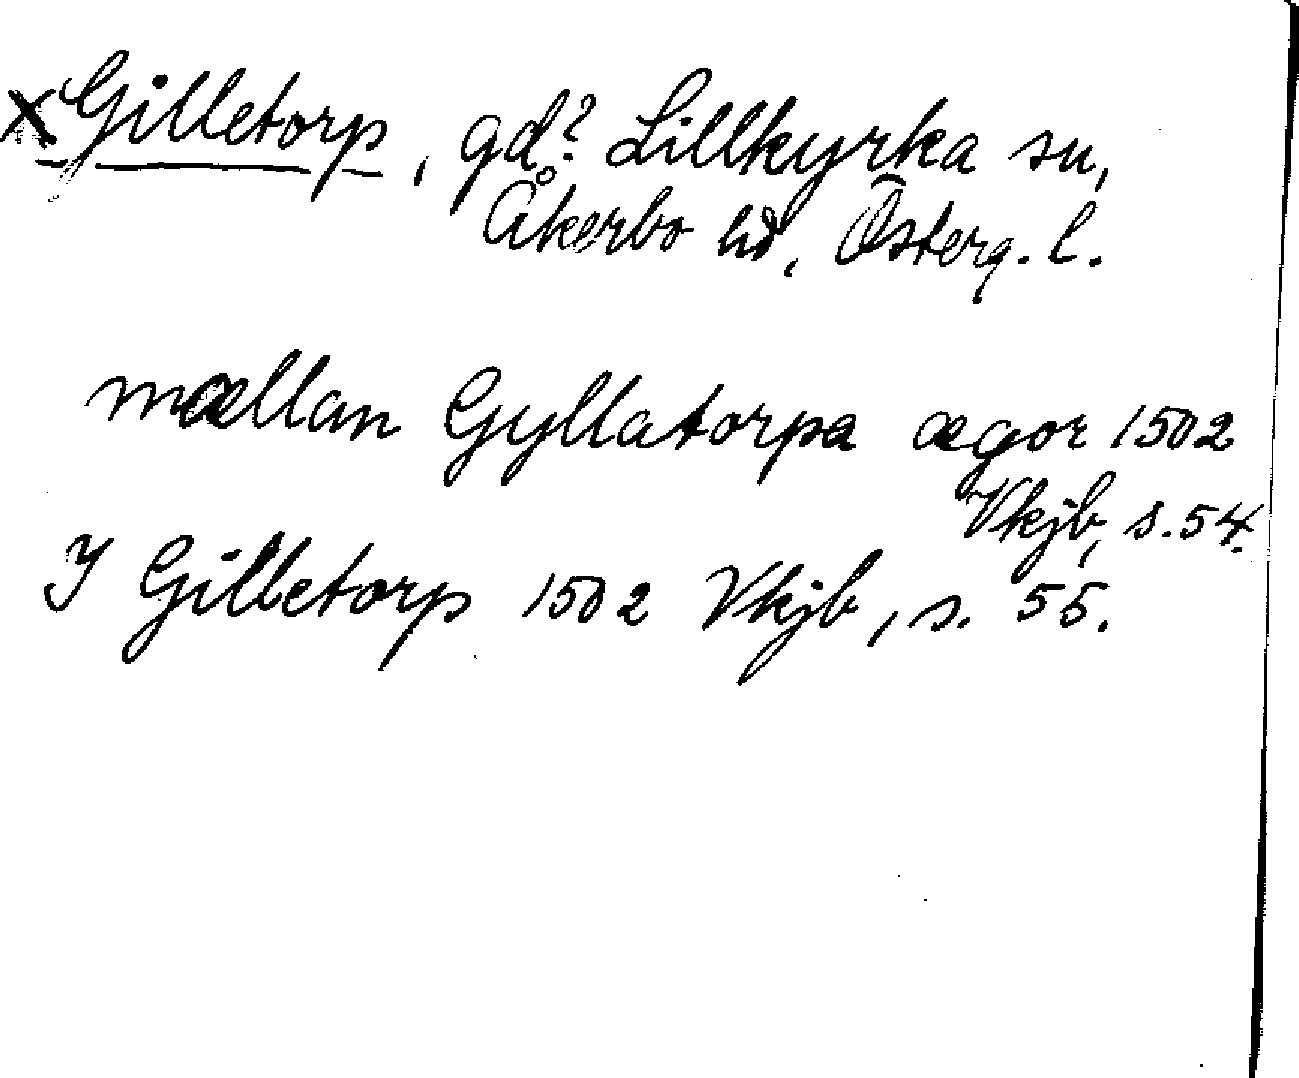 x Gilletorp, gd? Lillkyrka sn,
Åkerbo hd, Österg. l.
mællan Gyllatorpa ægor 1502
Vkjb, s. 54.
J Gilletorp 1502 Vkjb, s. 55.